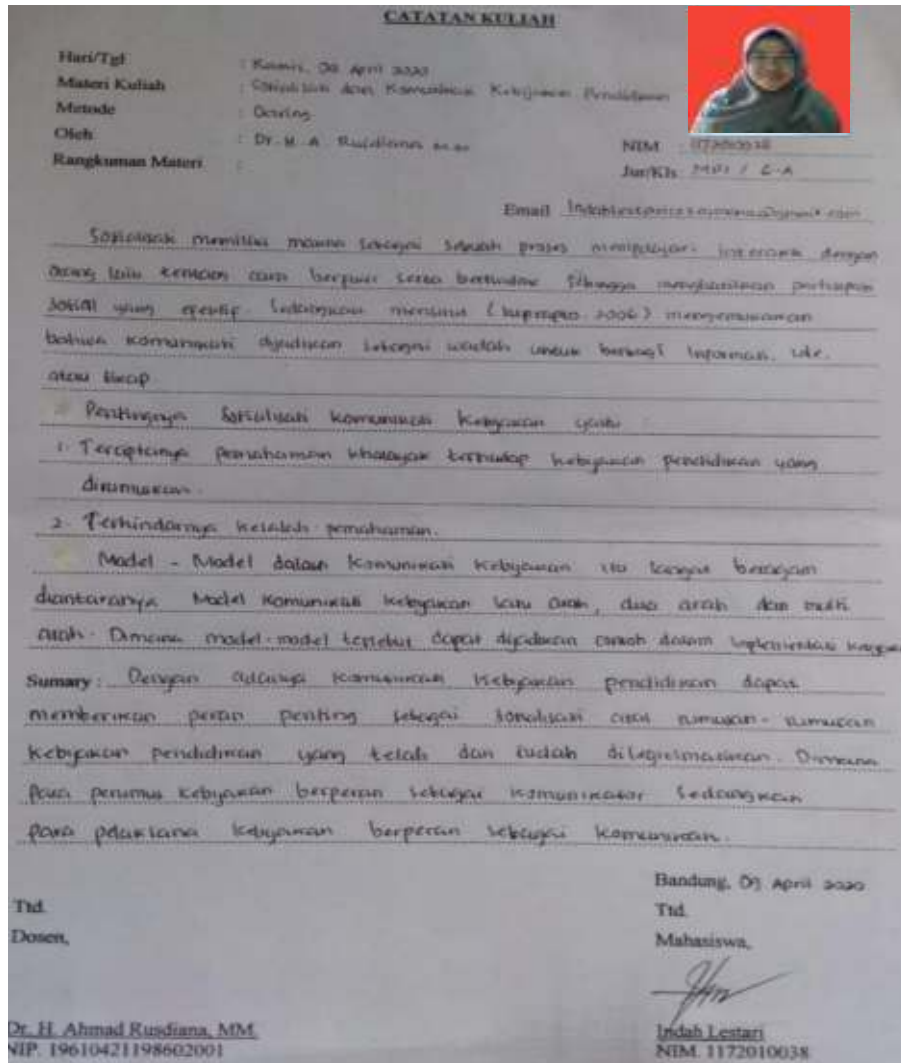 CATATAN KULIAH
Hari/Tgl : Kamis, 09 April 2020
Materi Kuliah : Sosialisasi dan Komunikasi Kebijakan Pendidikan
Metode : Daring
Oleh : Dr. H. A. Rusdiana M.M
NIM : 1172010038
Rangkuman Materi :
Jur/Kls MPI / 6-A
Email
Sosialisasi memiliki makna sebagai sebuah proses mempelajari interaksi dengan
orang lain tentang cara berpikir serta bertindak sehingga menghasilkan partisipasi
sosial yang efektif. Sedangkan menurut ( 2006) mengemukakan
bahwa komunikasi dijadikan sebagai wadah untuk berbagi informasi, ide,
atau sikap.
Pentingnya sosialisasi komunikasi kebijakan yaitu :
1. Terciptanya pemahaman khalayak terhadap kebijakan pendidikan yang
dirumuskan.
2. Terhindarnya kesalah pemahaman.
Model - Model dalam komunikasi kebijakan itu sangat beragam
diantaranya Model komunikasi kebijakan satu arah, dua arah dan multi
arah. Dimana model-model tersebut dapat dijadikan contoh dalam
Sumary : Dengan adanya komunikasi kebijakan pendidikan dapat
memberikan peran penting sebagai sosialisasi atas rumusan-rumusan
kebijakan pendidikan yang telah dan sudah Dimana
para perumus kebijakan berperan sebagai komunikator sedangkan
para pelaksana kebijakan berperan sebagai komunikan.
Bandung, 09 April 2020
Ttd.
Ttd.
Dosen,
Mahasiswa,
Dr. H. Ahmad Rusdiana, MM.
Indah Lestari
NIP. 19610421198602001
NIM. 1172010038